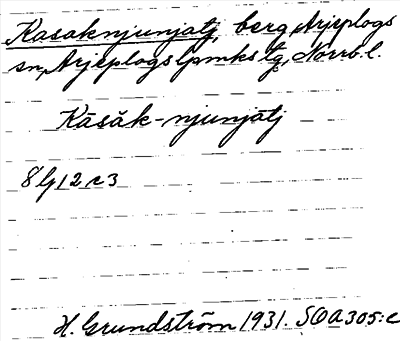 Kasaknjunjatj, berg, Arjeplogs
sn, Arjeplogs lpmks tg, Norrb. l.
Kāsăk-njunjātj
8 g 12 c 3
H. Grundström 1931. SOA 305:c